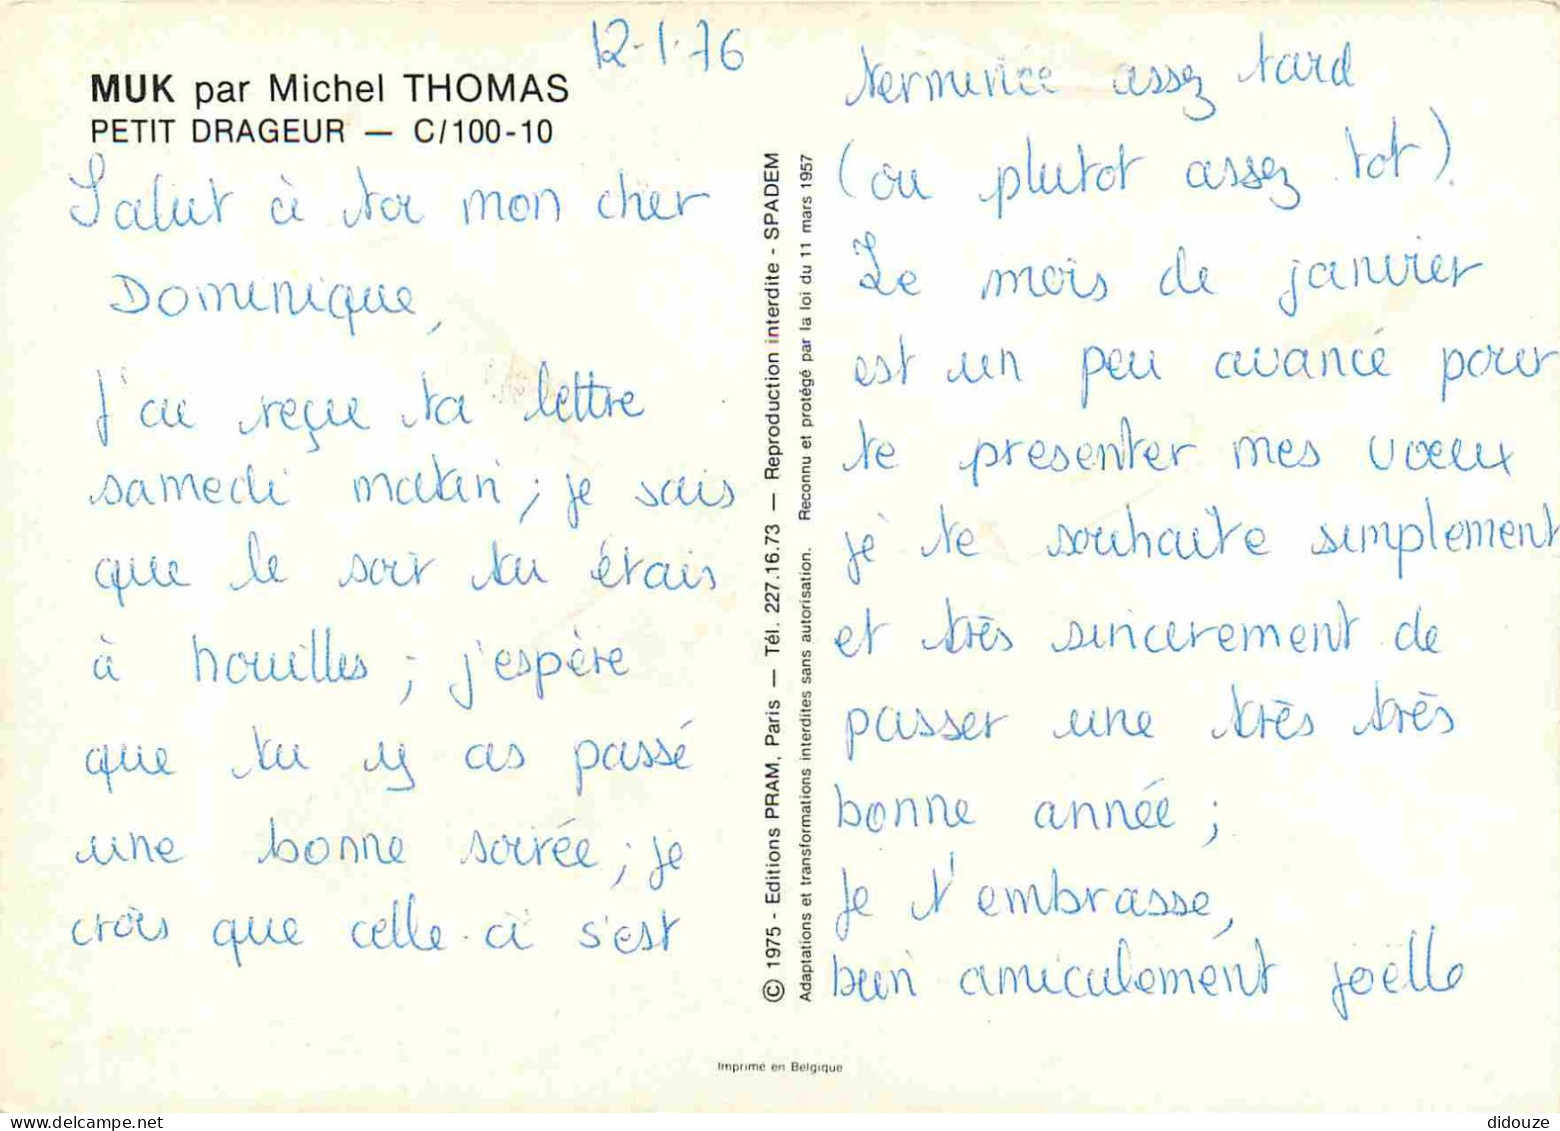 12-1-76
MUK par Michel THOMAS
PETIT DRAGEUR — C/100-10
Salut à toi mon cher
Dominique,
J'ai reçu ta lettre
samedi matin ; je sais
que le soir tu étais
à houilles ; j'espère
que tu y as passé
une bonne soirée ; je
crois que celle-ci s'est
© 1975 - Editions PRAM, Paris — Tél. 227.16.73 — Reproduction interdite - SPADEM
Adaptations et transformations interdites sans autorisation. Reconnu et protégé par la loi du 11 mars 1957
terminée assez tard
(ou plutot assez tot).
Le mois de janvier
est un peu avancé pour
te presenter mes voeux
je te souhaite simplement
et très sincerement de
passer une très très
bonne année ;
Je t'embrasse,
bien amicalement joëlle
Imprimé en Belgique
didouze